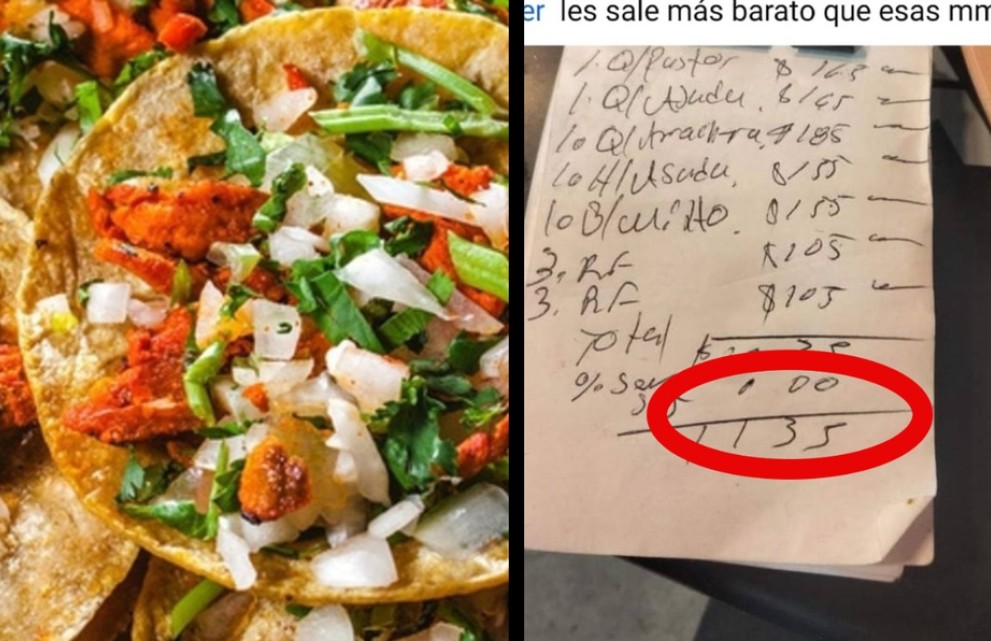 er les sale más barato que esas mm
1. Q/Pastor $ 165
1. Q/Asada. $165
1o Q/Arrachera, $185
1o H/Asada. $155
1o $155
3. RF $105
3. RF $105
Total $1035
% 100
1135